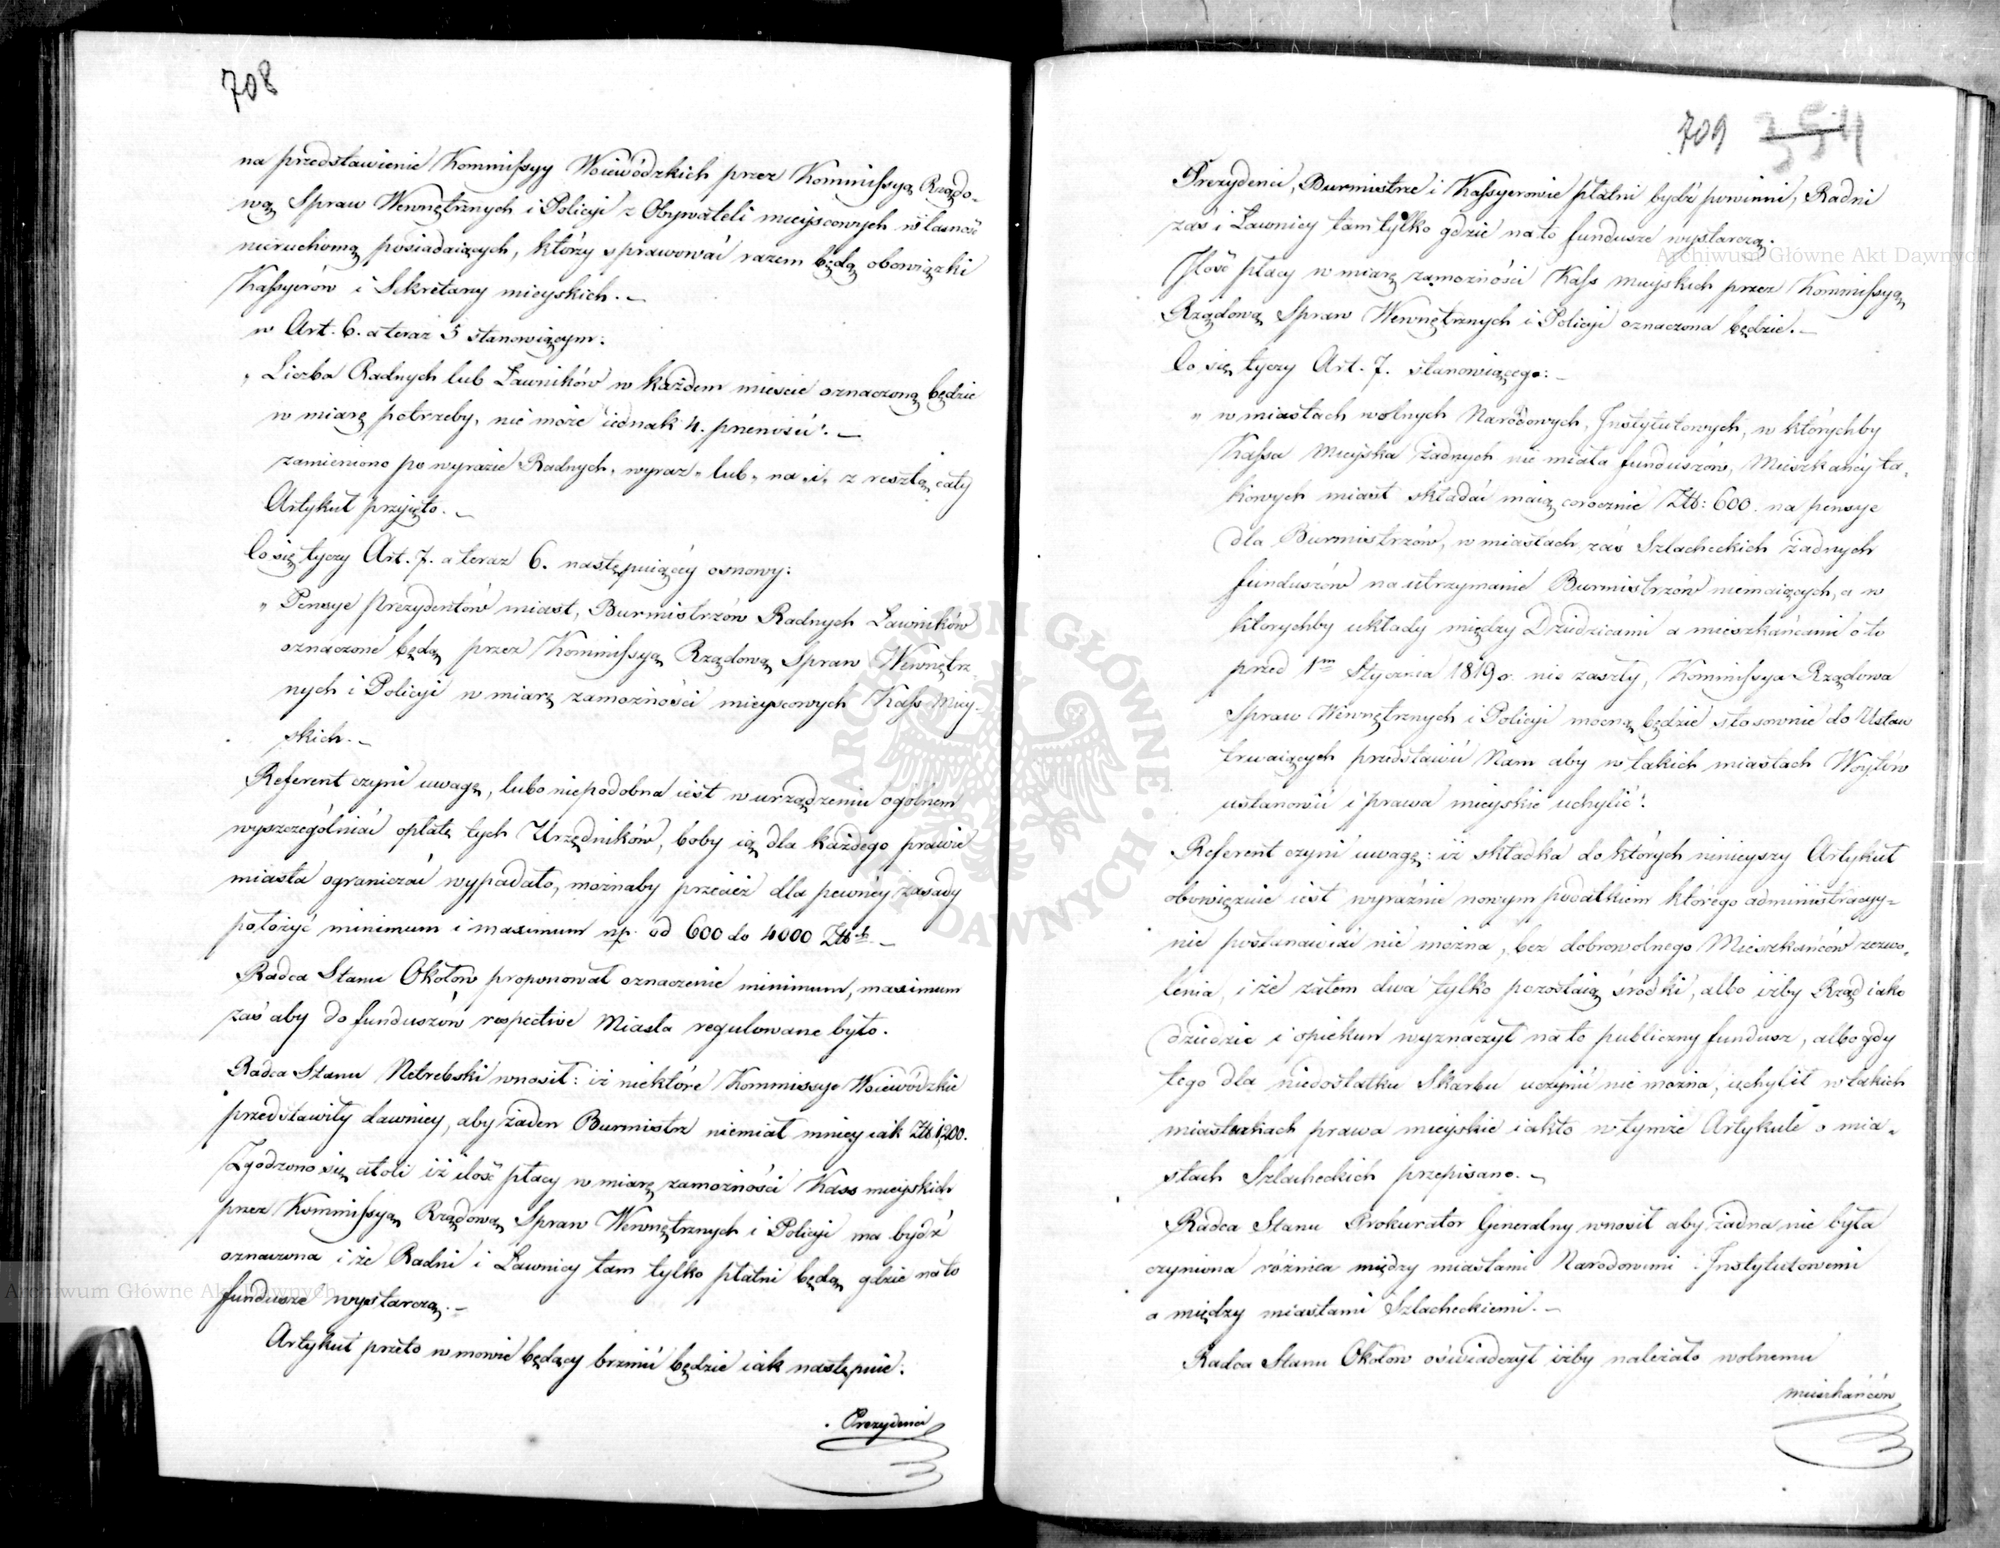 708
na przedstawienie Kommissyy Woiewódzkich przez Kommissyą Rządo-
wą Spraw Wewnętrznych i Policyi z Obywateli mieyscowych własność
nieruchomą posiadaiących, którzy sprawować razem będą obowiązki
Kassyerów i Sekretarzy mieyskich. –
w Art. 6. a teraz 5 stanowiącym:
„ Liczba Radnych lub Ławników w każdem mieście oznaczoną będzie
w miarę potrzeby, nie może iednak 4. przenosić. –
zamieniono po wyrazie Radnych, wyraz „lub„ na „i„ z resztą cały
Artykuł przyięto. –
Co się tyczy Art. 7. a teraz 6. następuiącéy osnowy:
„ Pensye Prezydentów miast, Burmistrzów Radnych Ławników
oznaczone będą przez Kommissyą Rządową Spraw Wewnętrz-
nych i Policyi w miarę zamożności mieyscowych Kass Miey-
skich. –
Referent czyni uwagę, lubo niepodobna iest w urządzeniu ogólnem
wyszczególniać opłatę tych Urzędników, boby ią dla każdego prawie
miasta ograniczać wypadało, możnaby przecież dla pewnéy zasady
położyć minimum i maximum np. od 600 do 4000 Złtch. –
Radca Stanu Okołow proponował oznaczenie minimum, maximum
zaś aby do funduszów respective Miasta regulowane było.
Radca Stanu Netrebski wnosił: iż niektóre Kommissye Woiewódzkie
przedstawiły dawniey, aby żaden Burmistrz niemiał mniey iak Zł. 1,200.
Zgodzono się atoli iż ilość płacy w miarę zamożności Kass mieyskich
przez Kommissyą Rządową Spraw Wewnętrznych i Policyi ma bydź
oznaczona i że Radni i Ławnicy tam tylko płatni będą gdzie na to
fundusze wystarczą. –
Artykuł przeto w mowie będący brzmić będzie iak następuie:
Prezydenci
709 354
Prezydenci, Burmistrze i Kassyerowie płatni bydź powinni, Radni
zaś i Ławnicy tam tylko gdzie na to fundusze wystarczą.
Ilość płacy w miarę zamożności Kass mieyskich przez Kommissyą
Rządową Spraw Wewnętrznych i Policyi oznaczona będzie. –
Co się tyczy Art. 7. stanowiącego: –
„ w miastach wolnych Narodowych, Instytutowych, w którychby
Kassa Mieyska żadnych nie miała funduszów, Mieszkańcy ta-
kowych miast składać maią corocznie Złt: 600. na pensye
dla Burmistrzów, w miastach zaś Szlacheckich żadnych
funduszów na utrzymanie Burmistrzów niemaiących, a w
którychby układy między Dziedzicami a mieszkańcami o to
przed 1m Stycznia 1819 r. nie zaszły, Kommissya Rządowa
Spraw Wewnętrznych i Policyi mocną będzie stosownie do Ustaw
trwaiących przedstawić Nam aby w takich miastach Woytów
ustanowić i prawa mieyskie uchylić.
Referent czyni uwagę: iż składka do których ninieyszy Artykuł
obowięzuie iest wyraźnie nowym podatkiem którego administracyy-
nie postanawiać nie można, bez dobrowolnego Mieszkańców zezwo-
lenia, i że zatem dwa tylko pozostaią środki, albo iżby Rząd iako
dziedzic i opiekun wyznaczył na to publiczny fundusz, albo gdy
tego dla niedostatku Skarbu uczynić nie można, uchylił w takich
miasteczkach prawa mieyskie iak to w tymże Artykule o mia-
stach Szlacheckich przepisano. –
Radca Stanu Prokurator Generalny wnosił aby żadna nie była
czyniona różnica między miastami Narodowemi i Instytutowemi
a między miastami Szlacheckiemi. –
Radca Stanu Okołow oświadczył iżby należało wolnemu
mieszkańców
ARCHIWUM GŁÓWNE AKT DAWNYCH
Archiwum Główne Akt Dawnych
Archiwum Główne Akt Dawnych